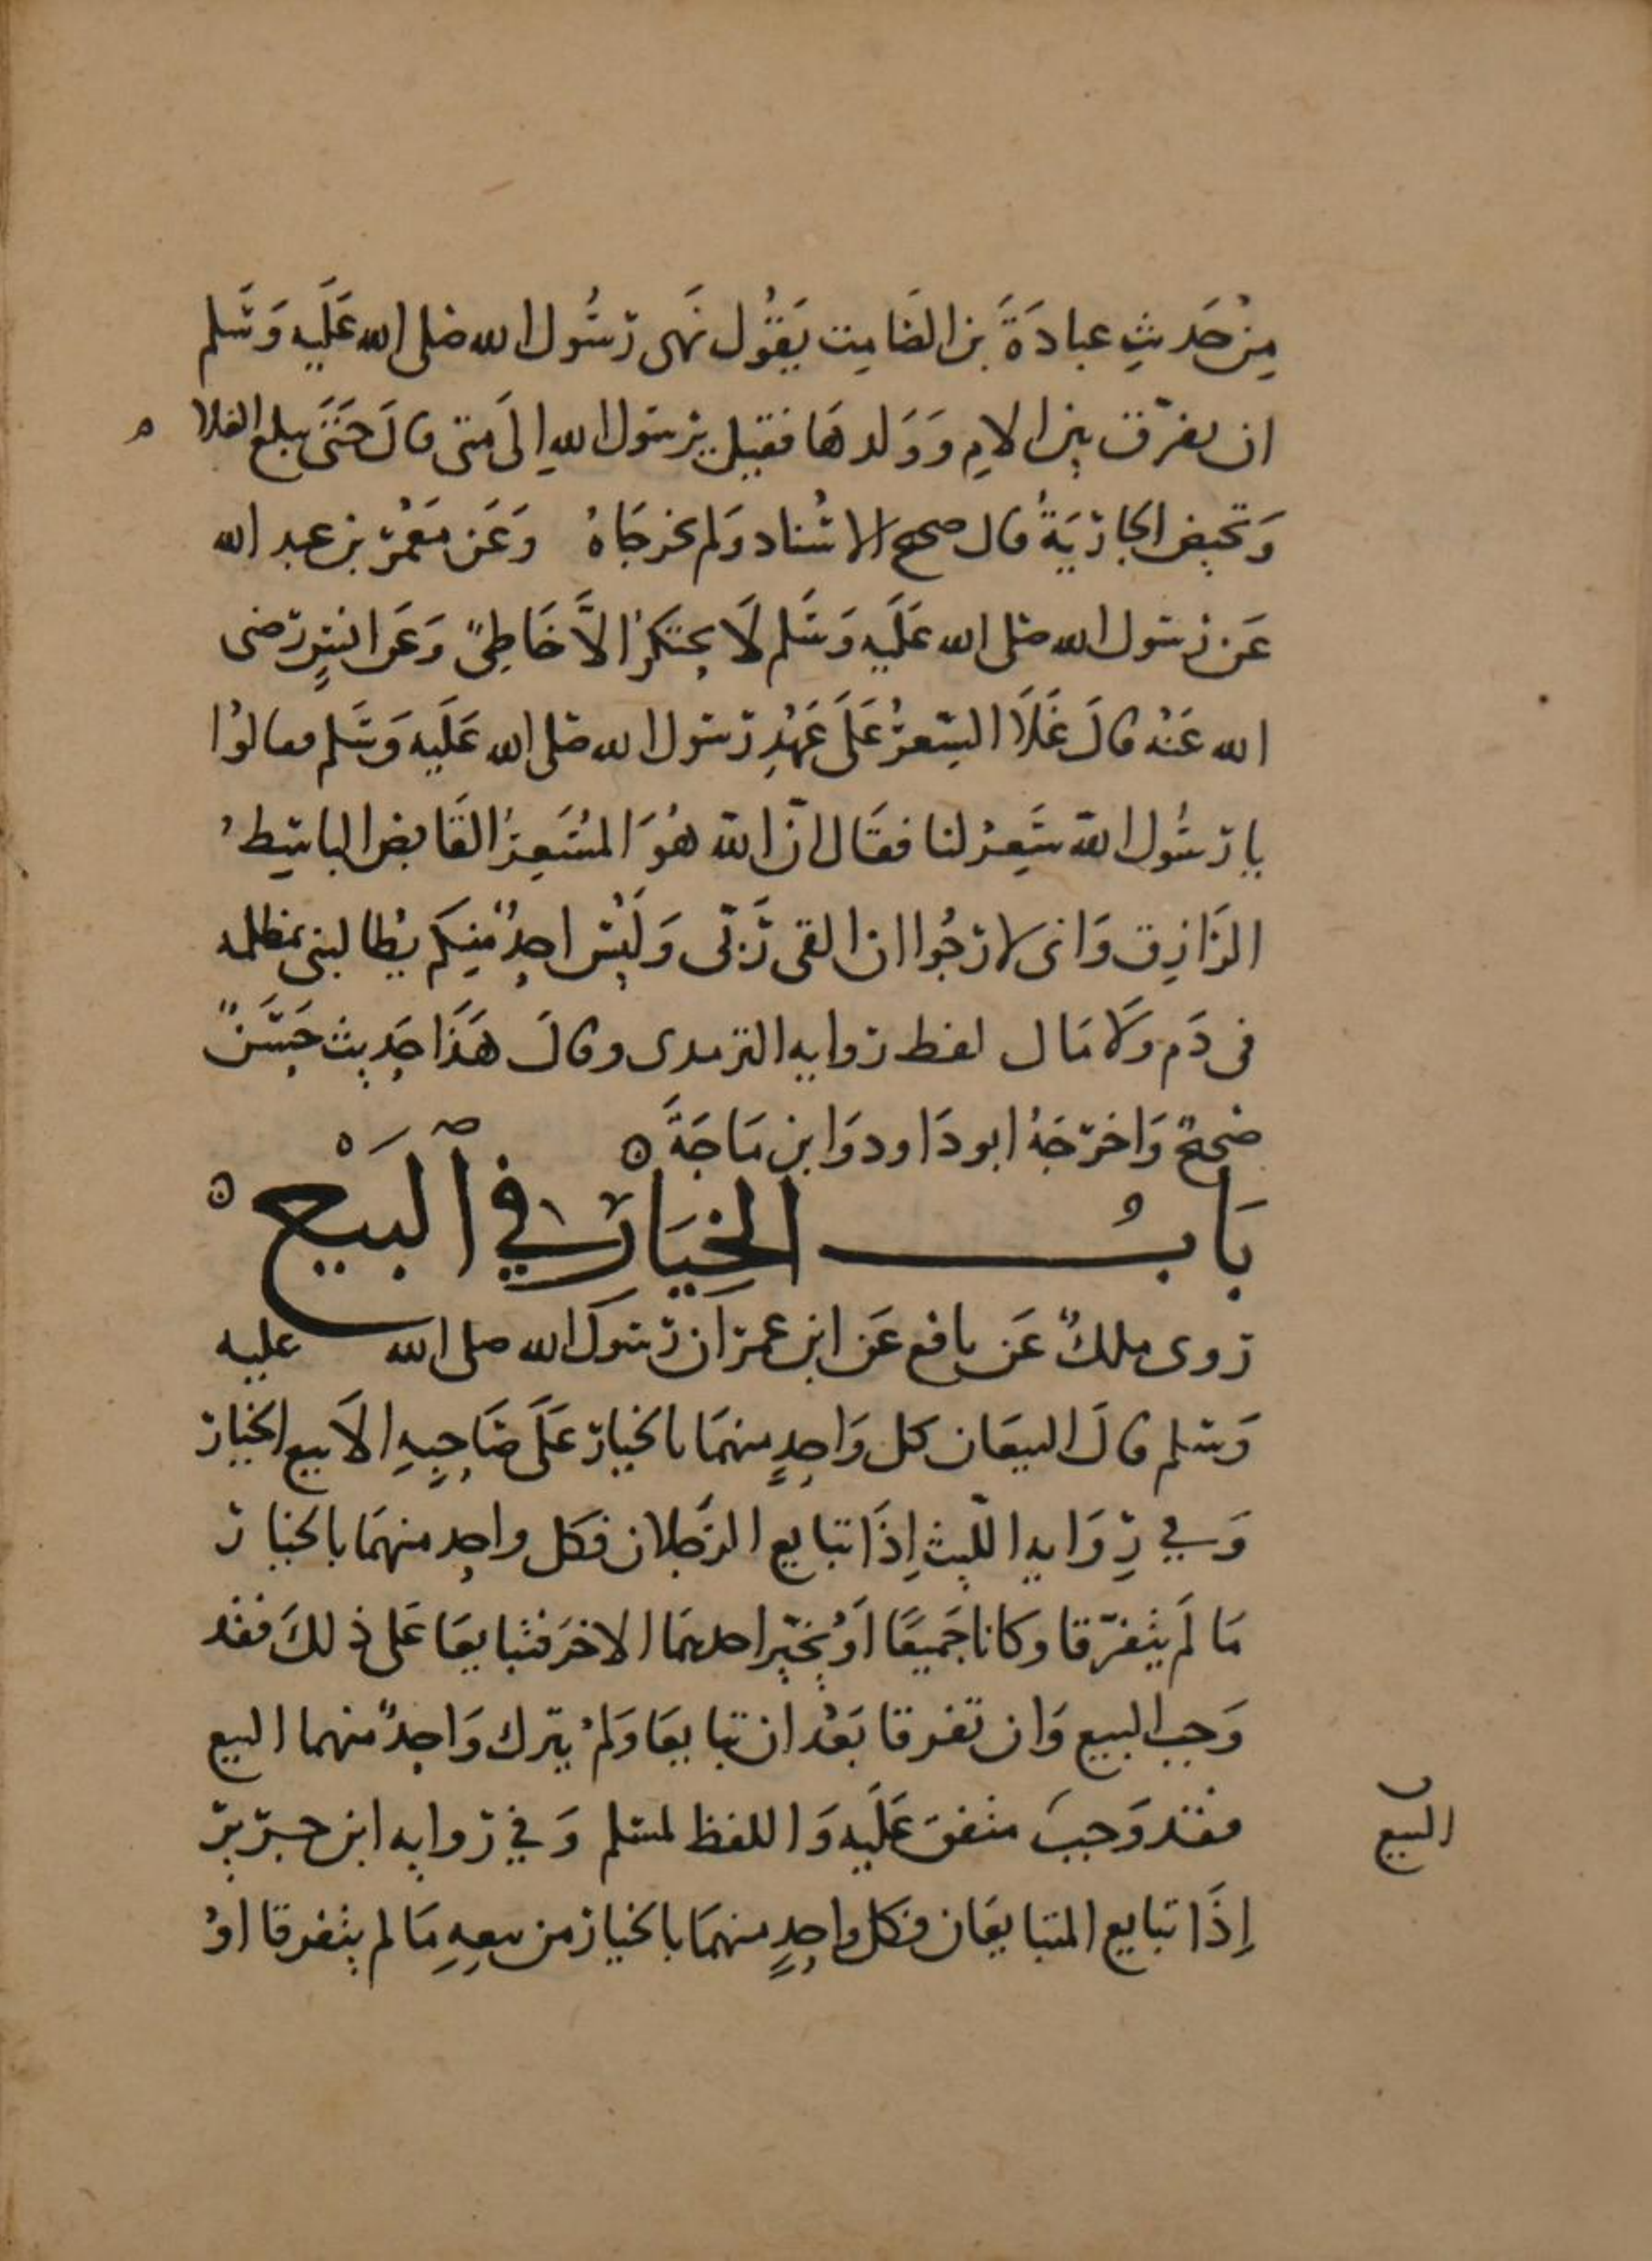 مِنْ حَديثِ عبادَةَ بن الصَامِت يَقوُل نَهَى رسُول الله صلى الله عَلَيه وَسَلم
ان يفرّق بين الامِ وَوَلدهَا فقيل يرسَول اللهِ إلَى متى قالَ حَتىَ يبلغ الغلام
وَتحيض الجارَيَةُ قال صحيح الاسْناد وَلم يخرجَاهُ وَعَن مَعْمَر بن عبد الله
عَن رسَول الله صلى الله عَلَيه وَسَلم لَا يحتكرُ الاَّ خَاطِئٌ وَعَن انسٍ رَضى
الله عَنْه قالَ غَلَا السِّعرُ عَلَى عَهْدِ رسَول الله صلى الله عَلَيه وَسَلم فقالوُا
يا رسُول الله سَعِرْ لنا فقَال انّ الله هُوَ المُسَعِرُ القَابِض الباسِطُ
الرَازِق وَانى لارجُوا ان القى رَبّى وَلَيْسَ احدٌ منِكم يُطالبنى بمظلمه
فى دَم وَلَا مَال لفظ روايه الترمدى وقالَ هَذَا حَدِيث حَسَنٌ
صَحيحٌ وَاخرَجَهُ ابو دَاود وَابن مَاجَةَ ه
بَابُ الخِيَارِ في ٱلبَيْع ه
روى ملكٌ عَن نافع عَن ابن عمرَ ان رسَولَ الله صلى الله عليه
وَسَلم قالَ البيعَان كل وَاحدٍ منهمَا بالخيار عَلَى صَاحِبِهِ الاَ بيع الخيار
وَفي رِوَايه اللّيث إِذَا تبايع الرَجلان فكل واحِد منهمَا بالخيار
مَا لَم يتفرّقا وكانا جَميعًا اَوْ يُخيّر احدهمَا الاخرَ فتبايعَا عَلى ذلكَ فقد
وَجب البيع وَان تفرقا بَعْد ان تبايعَا وَلَمْ يترك وَاحِدٌ منهما البيع
فقد وَجبَ متفق عَلَيه وَاللفظ لمسَلم وَفي روايه ابن جرير
إِذَا تبايع المتبايعَان فكل واحِدٍ منهمَا بالخيار من بيعِهِ مَا لم يتفرقا اوْ
البيع